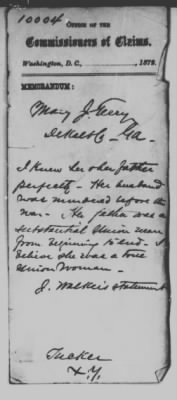 10004
OFFICE OF THE
Commissioners of Claims.
Washington, D. C., , 1873.
MEMORANDUM:
Mary J. Terry
DeKalb Co Ga.
I knew her & her father
perfectly - Her husband
was murdered before the
war - Her father was a
substantial Union man
from beginning to end - I
believe she was a true
Union woman -
J. Walker's statement
Tucker